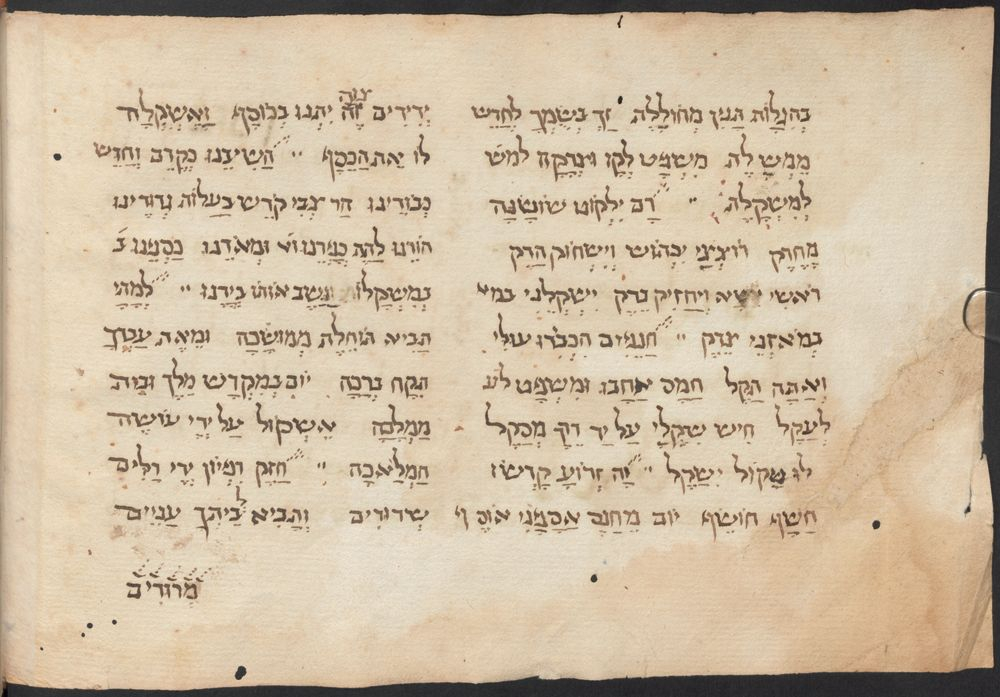 בהגלות הגיון מחוללת זך בשמך לחדש
ממשלת משפט לקו וצדקה למש
למשקלת רם ילקוט שושנה
מחדק קוצי יכתוש וישחוק הדק
ראשי ישא ויחזיק בדק ישקלני במא
במאזני צדק הכבדו עולי
ואתה הקל חמס אהבו ומשפט לע
לעקל חיש שקלי על יד דך מסקל
לו שקול ישקל יה זרוע קדשו
חשף חושף יום אכפני
ידידים זה יתנו בכוסף ואשקלה
לו את הכסף השיבנו כקדם וחדש
כבודינו הר צבי קדש בעלות נדודינו
הורנו לתת כפרנו ומאודנו כספנו ב
במשקלו ונשב אותו בידנו למתי
תביא תוחלת ממושכה ומאת עטרך
תקח ברכה יום במקדש מלך ובית
ממלכה אשקול על ידי עושה
המלאכה חזק רפיון ידי דלים
שדודים והביא לביתך עניים
מרודים